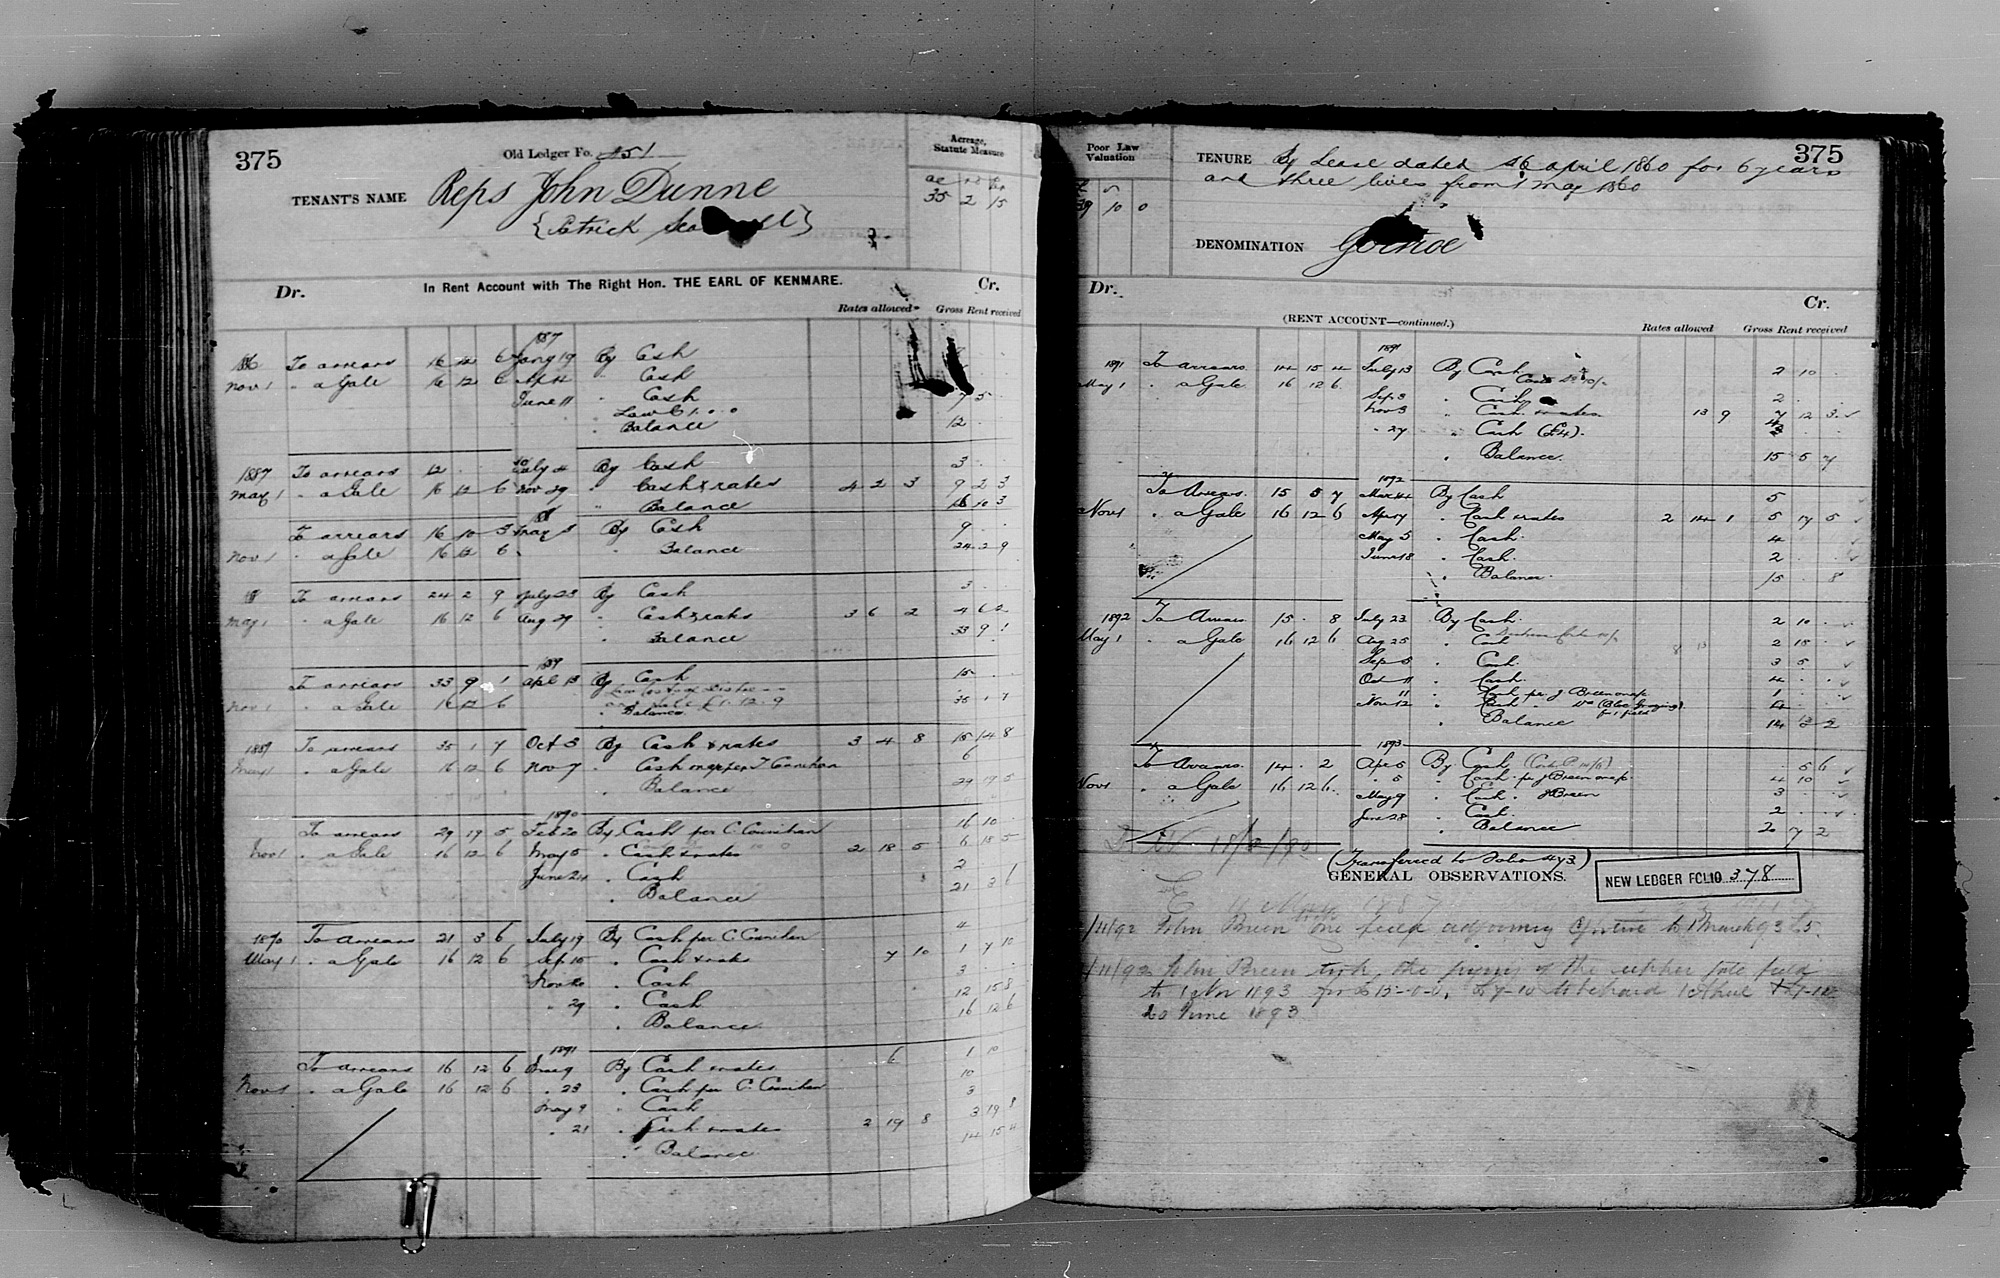 375
Old Ledger Fo. 151
TENANT'S NAME Reps John Dunne
{Patrick
Acreage, Statute Measure
35 2 15
In Rent Account with The Right Hon. THE EARL OF KENMARE.
Dr. Cr.
Rates allowed Gross Rent received
1887
To arrears 16 12 6 Jany 19 By Cash
Nov 1 " a Gale 16 12 6 Apl 4 " Cash
June 11 " Cash 7 5
" Law C 1.0.0
" Balance 12
1887 To arrears 12 . . July 4 By Cash 3
May 1 " a Gale 16 12 6 Nov 29 " Cash & rates 4 2 3 9 2 3
" Balance 16 10 3
To arrears 16 10 3 May By Cash 9
Nov 1 " a Gale 16 12 6 " Balance 24 2 9
To arrears 24 2 9 July 23 By Cash 3
May 1 " a Gale 16 12 6 Aug 29 " Cash & rates 3 6 2 4 6 2
" Balance 33 9 1
1889
To arrears 33 9 1 Apl 13 By Cash 15
Nov 1 " a Gale 16 12 6 £1.12.9
" Balance 35 1 7
1889 To arrears 35 1 7 Oct 3 By Cash & rates 3 4 8 15 14 8
May 1 " a Gale 16 12 6 Nov 7 " Cash per T Counihan 6
" Balance 29 19 5
1890
To arrears 29 19 5 Feb 20 By Cash per C. Counihan 16 10
Nov 1 " a Gale 16 12 6 May 5 " Cash & rates 2 18 5 6 18 5
June 21 " Cash 2
" Balance 21 3 6
1890 To Arrears 21 3 6 July 19 By Cash per C. Counihan 4
May 1 " a Gale 16 12 6 Sep 15 " Cash & rates 7 10 1 7 10
Nov 20 " Cash 3
" 29 " Cash 12 15 8
" Balance 16 12 6
1891
To Arrears 16 12 6 By Cash & rates 6 1 10
Nov 1 " a Gale 16 12 6 " 23 " Cash per C. Counihan 10
May 9 " Cash 3
" 21 " Cash & rates 2 19 8 3 19 8
" Balance 14 15 4
Poor Law Valuation
10 0
TENURE By Lease dated 26 April 1860 for 6 years 375
and three lives from 1 May 1860
DENOMINATION Gortroe
Dr. Cr.
(RENT ACCOUNT—continued.)
Rates allowed Gross Rent received
1891
1891 To arrears 14 15 4 July 13 By Cash 2 10 .
May 1 " a Gale 16 12 6
Sep 3 " Cash 2
Nov 3 " Cash & rates 13 9 7 12 3
" 27 " Cash (£4).
" Balance 15 5 7
1892
To Arrears 15 5 7 Mar 14 By Cash 5
Nov 1 " a Gale 16 12 6 Apr 7 " Cash & rates 2 14 1 5 17 5
May 5 " Cash 4
June 18 " Cash 2
" Balance 15 . 8
1892 To Arrears 15 . 8 July 23 By Cash 2 10
May 1 " a Gale 16 12 6 Aug 25 " Cash 2 18
Sep 5 " Cash 3 5
Oct 11 " Cash 4
" 11 " Cash per J Breen 1
Nov 12 " Cash " Do (Bloc Grazing) 4
for 1 field
" Balance 14 . 2
1893
To Arrears 14 . 2 Apr 5 By Cash 5 6
Nov 1 " a Gale 16 12 6 " 5 " Cash per J Breen 4 10
May 9 " Cash " J Breen 3
June 28 " Cash 2
" Balance 20 7 2
(Transferred to Folio 473)
GENERAL OBSERVATIONS.
NEW LEDGER FOLIO 378
John Breen one field adjoining to 1 March 93 £5.
11/92 John Breen took the of the upper field
to 1 Nov 1893 for £15-0-0, £7-10 to be paid 1 April
20 June 1893